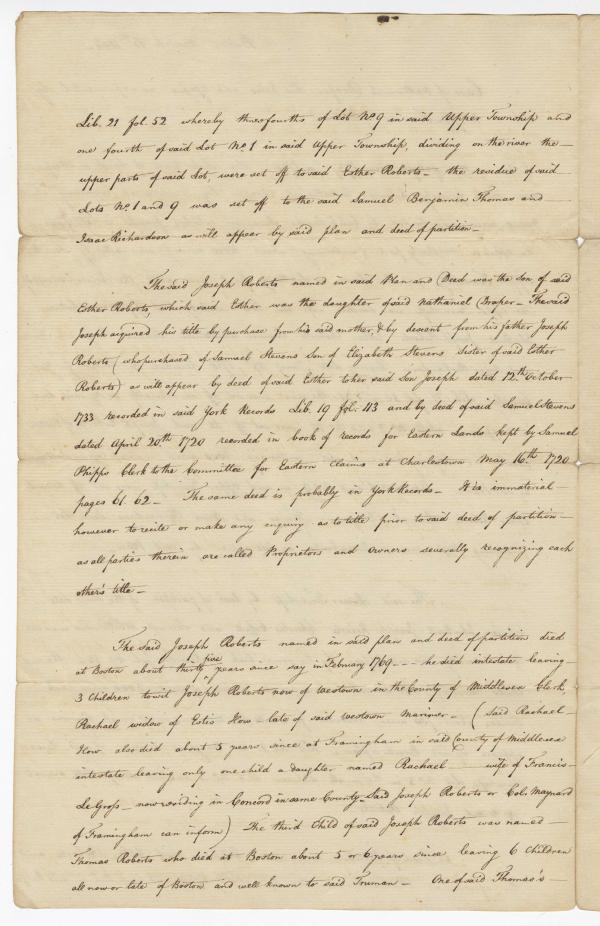 Lib. 21 fol. 52 whereby three fourths of Lot No. 9 in said Upper Township and
one fourth of said Lot No. 1 in said Upper Township, dividing on the river the
upper parts of said Lot, were set off to said Esther Roberts – the residue of said
Lots No. 1 and 9 was set off to the said Samuel Benjamin Thomas and
Isaac Richardson as will appear by said plan and deed of partition –
The said Joseph Roberts named in said Plan and Deed was the son of said
Esther Roberts, which said Esther was the daughter of said Nathaniel Draper – The said
Joseph acquired his title by purchase from his said mother, & by descent from his father Joseph
Roberts (who purchased of Samuel Stevens Son of Elizabeth Stevens Sister of said Esther
Roberts) as will appear by deed of said Esther to her said Son Joseph dated 12th October
1733 recorded in said York Records Lib. 19 fol. 113 and by deed of said Samuel Stevens
dated April 20th 1720 recorded in book of records for Eastern Lands kept by Samuel
Phipps Clerk to the Committee for Eastern claims at Charlestown May 16th 1720
pages 61 62 – The same deed is probably in York Records – It is immaterial –
however to recite or make any enquiry as to title prior to said deed of partition –
as all parties therein are called Proprietors and owners severally recognizing each
other's title –
The said Joseph Roberts named in said plan and deed of partition died
at Boston about thirty five years since say in February 1769 - - - he died intestate leaving
3 Children to wit Joseph Roberts now of Westown in the County of Middlesex Clerk,
Rachael widow of Estis How – late of said Westown Mariner – (Said Rachael –
How also died about 5 years since at Framingham in said County of Middlesex
intestate leaving only one child a daughter named Rachael wife of Francis –
Le Gross – now residing in Concord in same County – Said Joseph Roberts or Col. Maynard
of Framingham can inform) The third Child of said Joseph Roberts was named –
Thomas Roberts who died at Boston about 5 or 6 years since leaving 6 Children
all now or late of Boston and well known to said Truman – One of said Thomas's –